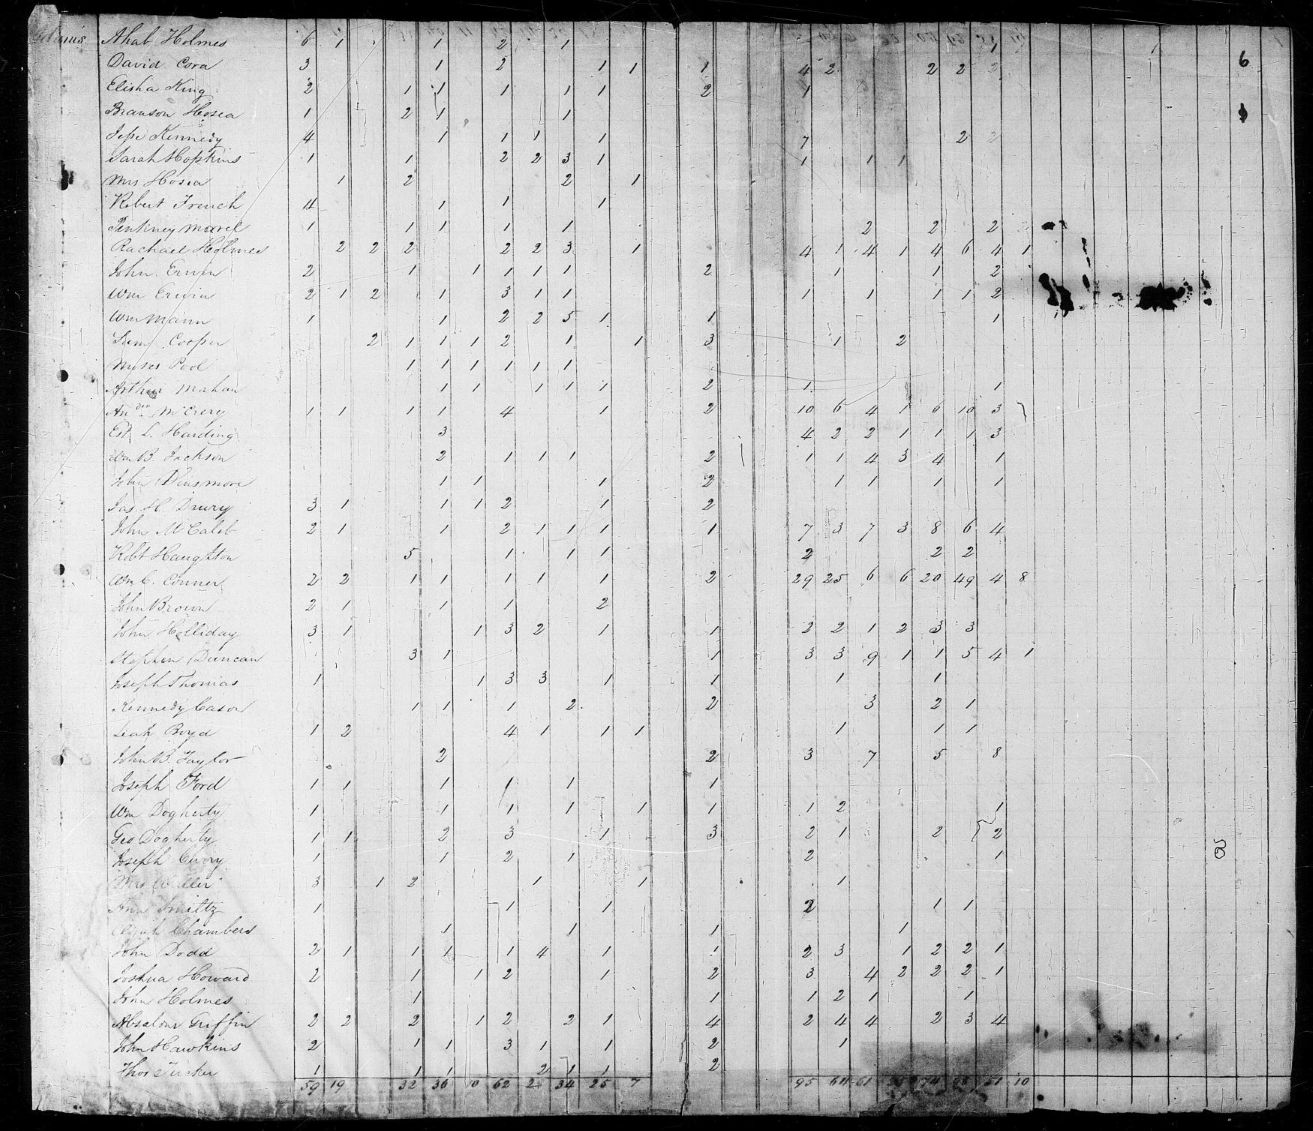 Ahab Holmes 6 1 1 2 1 1
David Cora 3 1 2 1 1 1 4 2 2 2 2 6
Elisha King 2 1 1 1 1 1 2 1
Branson Hosea 1 2 1 1
Jesse Kennedy 4 1 1 1 1 7 2 2
Sarah Hopkins 1 1 2 2 3 1 1 1 1
Mrs Hosea 1 2 2 1
Robert French 4 1 1 1
Pinkney 1 1 1 1 1 2 2 2
Rachael Holmes 2 2 2 2 2 3 1 4 1 4 1 4 6 4 1
John Erwin 2 1 1 1 1 1 2 1 1 2
Wm Erwin 2 1 2 1 3 1 1 1 1 1 1 2
Wm Mann 1 1 2 2 5 1 1 1
Cooper 2 1 1 1 2 1 1 3 1 2
Moses Pool 1 1 1 1 1 1
Arthur Mahan 1 1 1 1 1 2 1 1
McCrery 1 1 1 1 4 1 2 10 6 4 1 6 10 3
L. Harding 3 4 2 2 1 1 1 3
Wm B Jackson 2 1 1 1 2 1 1 4 3 4 1
John 1 1 1 2 1 1 1 1
Jas H Drury 3 1 1 1 2 1 2
John McCaleb 2 1 1 2 1 1 1 1 7 3 7 3 8 6 4
Robt Haughton 5 1 1 1 2 2 2
Wm C. Conner 2 2 1 1 1 1 1 2 29 25 6 6 20 49 4 8
John Brown 2 1 1 1 2
John Holliday 3 1 1 3 2 1 1 2 2 1 2 3 3
Stephen Duncan 3 1 1 3 3 9 1 1 5 4 1
Joseph Thomas 1 1 3 3 1 1 1 1
Kennedy Cason 1 1 1 2 2 3 2 1
Leah Boyd 1 2 4 1 1 1 1 1 1
John B. Taylor 2 2 3 7 5 8
Joseph Ford 1 1 1 1 1 1
Wm Dogherty 1 1 1 1 1 1 1 2 1
Geo Dogherty 1 1 2 3 1 3 2 1 2 2
Joseph 1 1 2 1 2 1
Mrs 3 1 2 1 1 1
1 1 1 2 1 1
Elijah Chambers 1 1 1 1
John Dodd 2 1 1 1 1 4 1 1 2 3 1 2 2 1
Joshua Howard 2 1 1 2 1 2 3 4 2 2 2 1
John Holmes 1 1 1 2 1 1
Absalom Griffin 2 2 2 1 2 2 1 4 2 4 4 2 3 4
John Hawkins 2 1 1 3 1 1 1 2 1
Thos Tucker 1 1 1 2 1 1 2
59 19 32 36 62 34 25 7 95 51 10